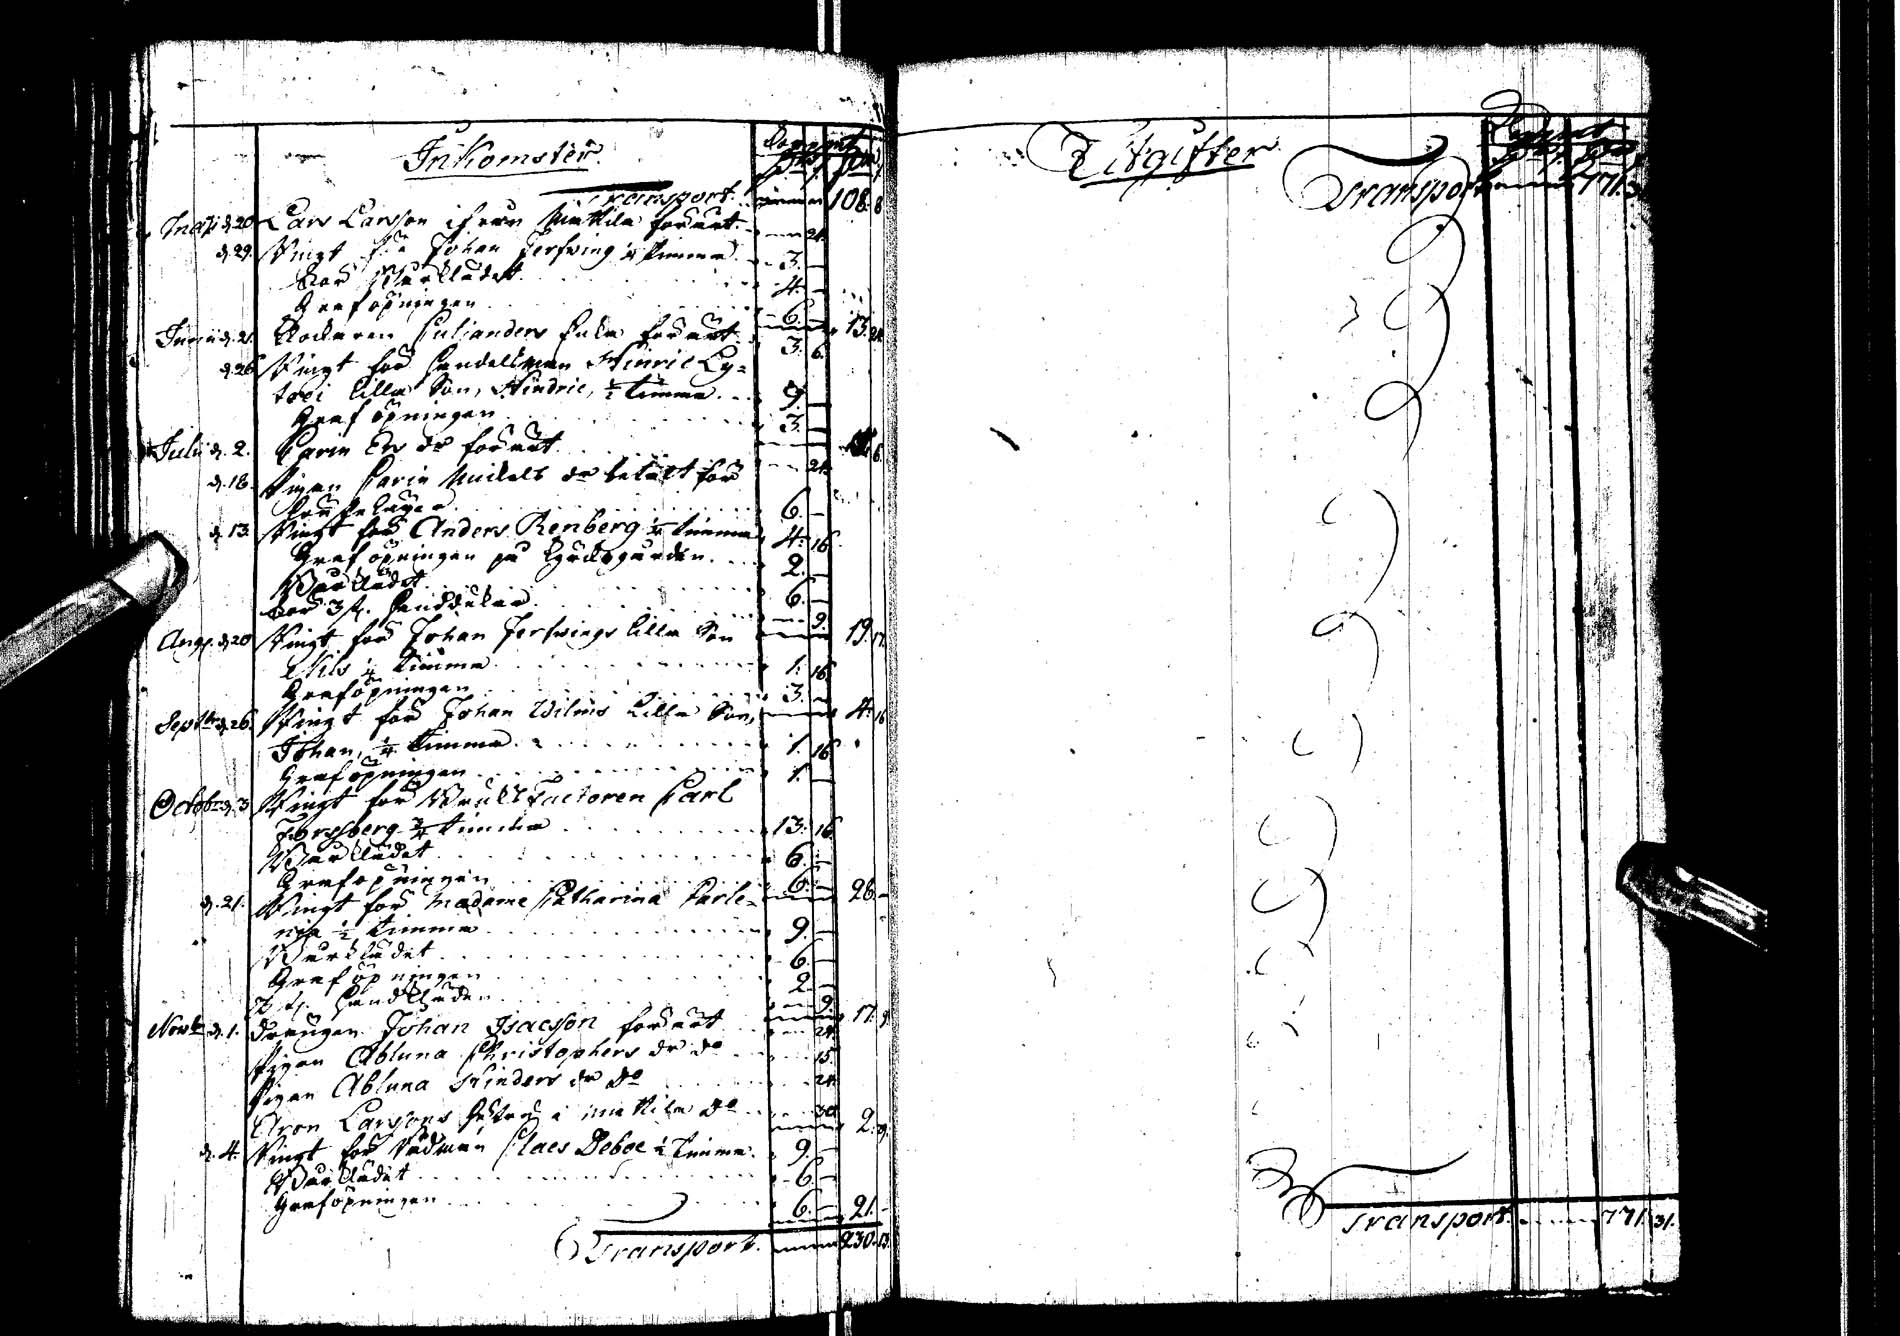 Inkomster.
Transport. 108. 8
Maji d. 20 Lars Larsson ifrån förärt. 24.
d. 29. Ringt för Johan Jerfwing 1/4 timma 3. —
för Bårklädet 4. —
Graföpningen 6. — 13. 24
Junii d. 21. Klockaren förärt 3. 6.
d. 26. Ringt för Handelsman Hinric Ly=
lilla Son, Hindric, 1/2 timma 9. —
Graföpningen 3. —
6.
Julii d. 2. Carin Ers dr förärt 24.
d. 18. Pigan Carin Mickels dr betalt för
6. —
d. 13. Ringt för Anders Renberg 1/4 timma 4. 16
Graföpningen på kyrkogården 2. —
Bårklädet 6. —
för 3 st. handdukar 9. 19. 17.
Aug. d. 20 Ringt för Johan Jerfwings lilla Son
Nils 1/4 timma 1. 16
Graföpningen 3. — 4. 16
Septbr d. 26. Ringt för Johan Wilms lilla Son,
Johan, 1/4 timma 1. 16
Graföpningen 1. —
Octobr d. 3 Ringt för Factoren Carl
Forssberg 3/4 timma 13. 16
Bårklädet 6. —
Graföpningen 6. — 26. —
d. 21. Ringt för Madame Catharina
1/2 timma 9. —
Bårklädet 6. —
Graföpningen 2. —
3 st. handkläden 9. 17. 9.
Novbr d. 1. Drängen Johan Isacsson förärt 24.
Pigan Abluna Christophers dr do 15.
Pigan Abluna Hinders dr do 24
Aron Larssons i do 30 2. 9.
d. 4. Ringt för Rådman Claes Deboe 1/2 Timma 9. —
Bårklädet 6. —
Graföpningen 6. — 21. —
Transport. 230. 13.
Utgifter
Transport 771. 31
Transport. 771. 31.